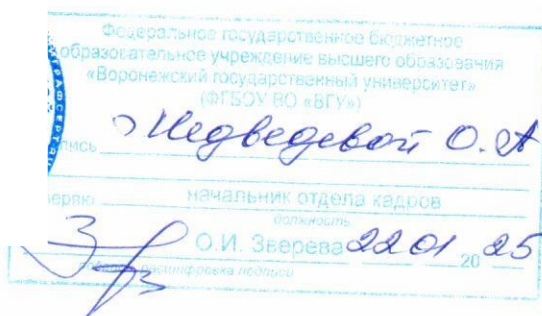 Федеральное государственное бюджетное
образовательное учреждение высшего образования
«Воронежский государственный университет»
(ФГБОУ ВО «ВГУ»)
пись Медведевой О.А
веряю начальник отдела кадров
должность
О.И. Зверева 22 01 20 25
расшифровка подписи